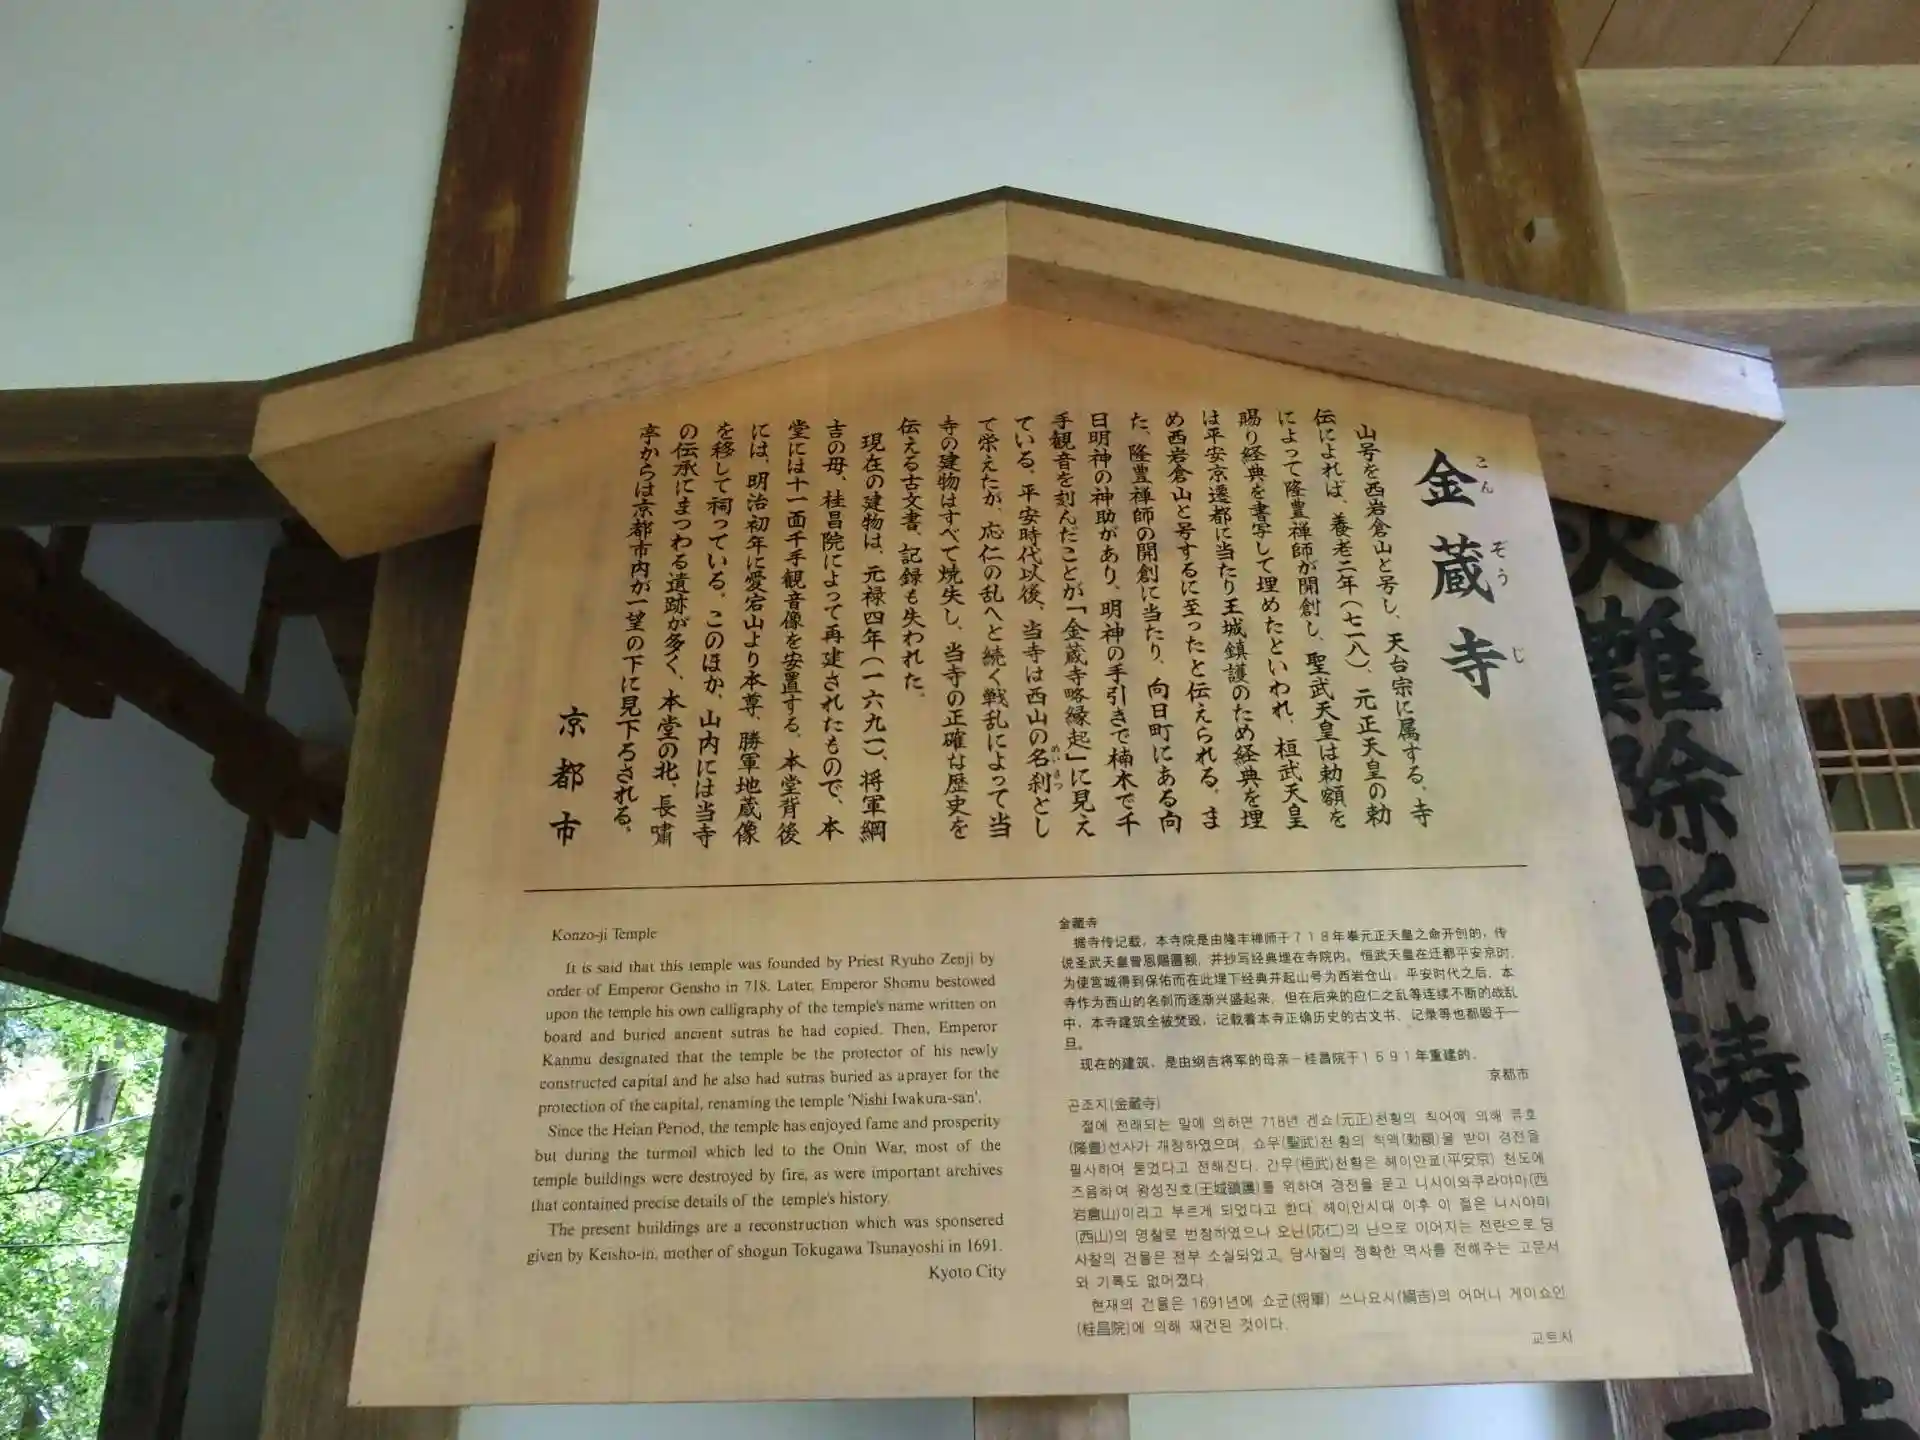 金蔵寺
こんぞうじ
山号を西岩倉山と号し、天台宗に属する。寺
伝によれば、養老二年(七一八)、元正天皇の勅
によって隆豊禅師が開創し、聖武天皇は勅額を
賜り経典を書写して埋めたといわれ、桓武天皇
は平安京遷都に当たり王城鎮護のため経典を埋
め西岩倉山と号するに至ったと伝えられる。ま
た、隆豊禅師の開創に当たり、向日町にある向
日明神の神助があり、明神の手引きで楠木で千
手観音を刻んだことが「金蔵寺略縁起」に見え
ている。平安時代以後、当寺は西山の名刹とし
めいさつ
て栄えたが、応仁の乱へと続く戦乱によって当
寺の建物はすべて焼失し、当寺の正確な歴史を
伝える古文書、記録も失われた。
現在の建物は、元禄四年(一六九一)、将軍綱
吉の母、桂昌院によって再建されたもので、本
堂には十一面千手観音像を安置する。本堂背後
には、明治初年に愛宕山より本尊、勝軍地蔵像
を移して祠っている。このほか、山内には当寺
の伝承にまつわる遺跡が多く、本堂の北、長嘯
亭からは京都市内が一望の下に見下ろされる。
京都市
Konzo-ji Temple
It is said that this temple was founded by Priest Ryuho Zenji by
order of Emperor Gensho in 718. Later, Emperor Shomu bestowed
upon the temple his own calligraphy of the temple's name written on
board and buried ancient sutras he had copied. Then, Emperor
Kanmu designated that the temple be the protector of his newly
constructed capital and he also had sutras buried as aprayer for the
protection of the capital, renaming the temple 'Nishi Iwakura-san'.
Since the Heian Period, the temple has enjoyed fame and prosperity
but during the turmoil which led to the Onin War, most of the
temple buildings were destroyed by fire, as were important archives
that contained precise details of the temple's history.
The present buildings are a reconstruction which was sponsered
given by Keisho-in, mother of shogun Tokugawa Tsunayoshi in 1691.
Kyoto City
金藏寺
据寺传记载，本寺院是由隆丰禅师于７１８年奉元正天皇之命开创的，传
说圣武天皇曾恩赐匾额，并抄写经典埋在寺院内。恒武天皇在迁都平安京时，
为使宫城得到保佑而在此埋下经典并起山号为西岩仓山。平安时代之后，本
寺作为西山的名刹而逐渐兴盛起来，但在后来的应仁之乱等连续不断的战乱
中，本寺建筑全被焚毁，记载着本寺正确历史的古文书、记录等也都毁于一
旦。
现在的建筑，是由纲吉将军的母亲－桂昌院于１６９１年重建的。
京都市
곤조지(金藏寺)
절에 전래되는 말에 의하면 718년 겐쇼(元正)천황의 칙어에 의해 류호
(隆豊)선사가 개창하였으며, 쇼무(聖武)천황의 칙액(勅額)을 받아 경전을
필사하여 묻었다고 전해진다. 간무(桓武)천황은 헤이안쿄(平安京) 천도에
즈음하여 왕성진호(王城鎮護)를 위하여 경전을 묻고 니시이와쿠라야마(西
岩倉山)이라고 부르게 되었다고 한다. 헤이안시대 이후 이 절은 니시야마
(西山)의 명찰로 번창하였으나 오닌(応仁)의 난으로 이어지는 전란으로 당
사찰의 건물은 전부 소실되었고, 당사찰의 정확한 역사를 전해주는 고문서
와 기록도 없어졌다.
현재의 건물은 1691년에 쇼군(将軍) 쓰나요시(綱吉)의 어머니 게이쇼인
(桂昌院)에 의해 재건된 것이다.
교토시
火難除祈祷祈